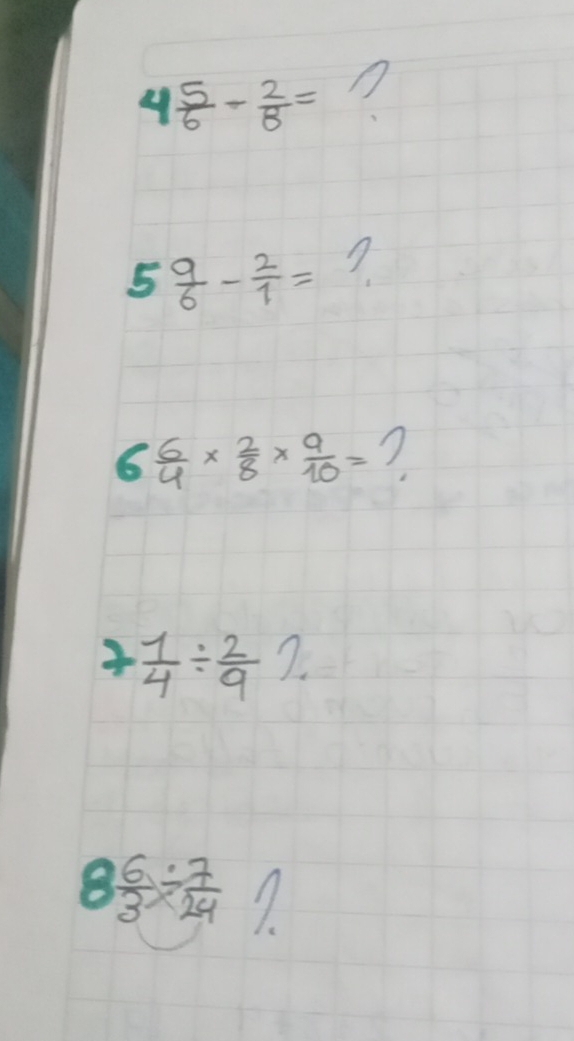 4 5/6 - 2/8 = ?
5 9/6 - 2/1 = ?
6 6/4 × 2/8 × 9/10 = ?
7 1/4 ÷ 2/9 ?
8 6/3 ÷ 7/24 ?